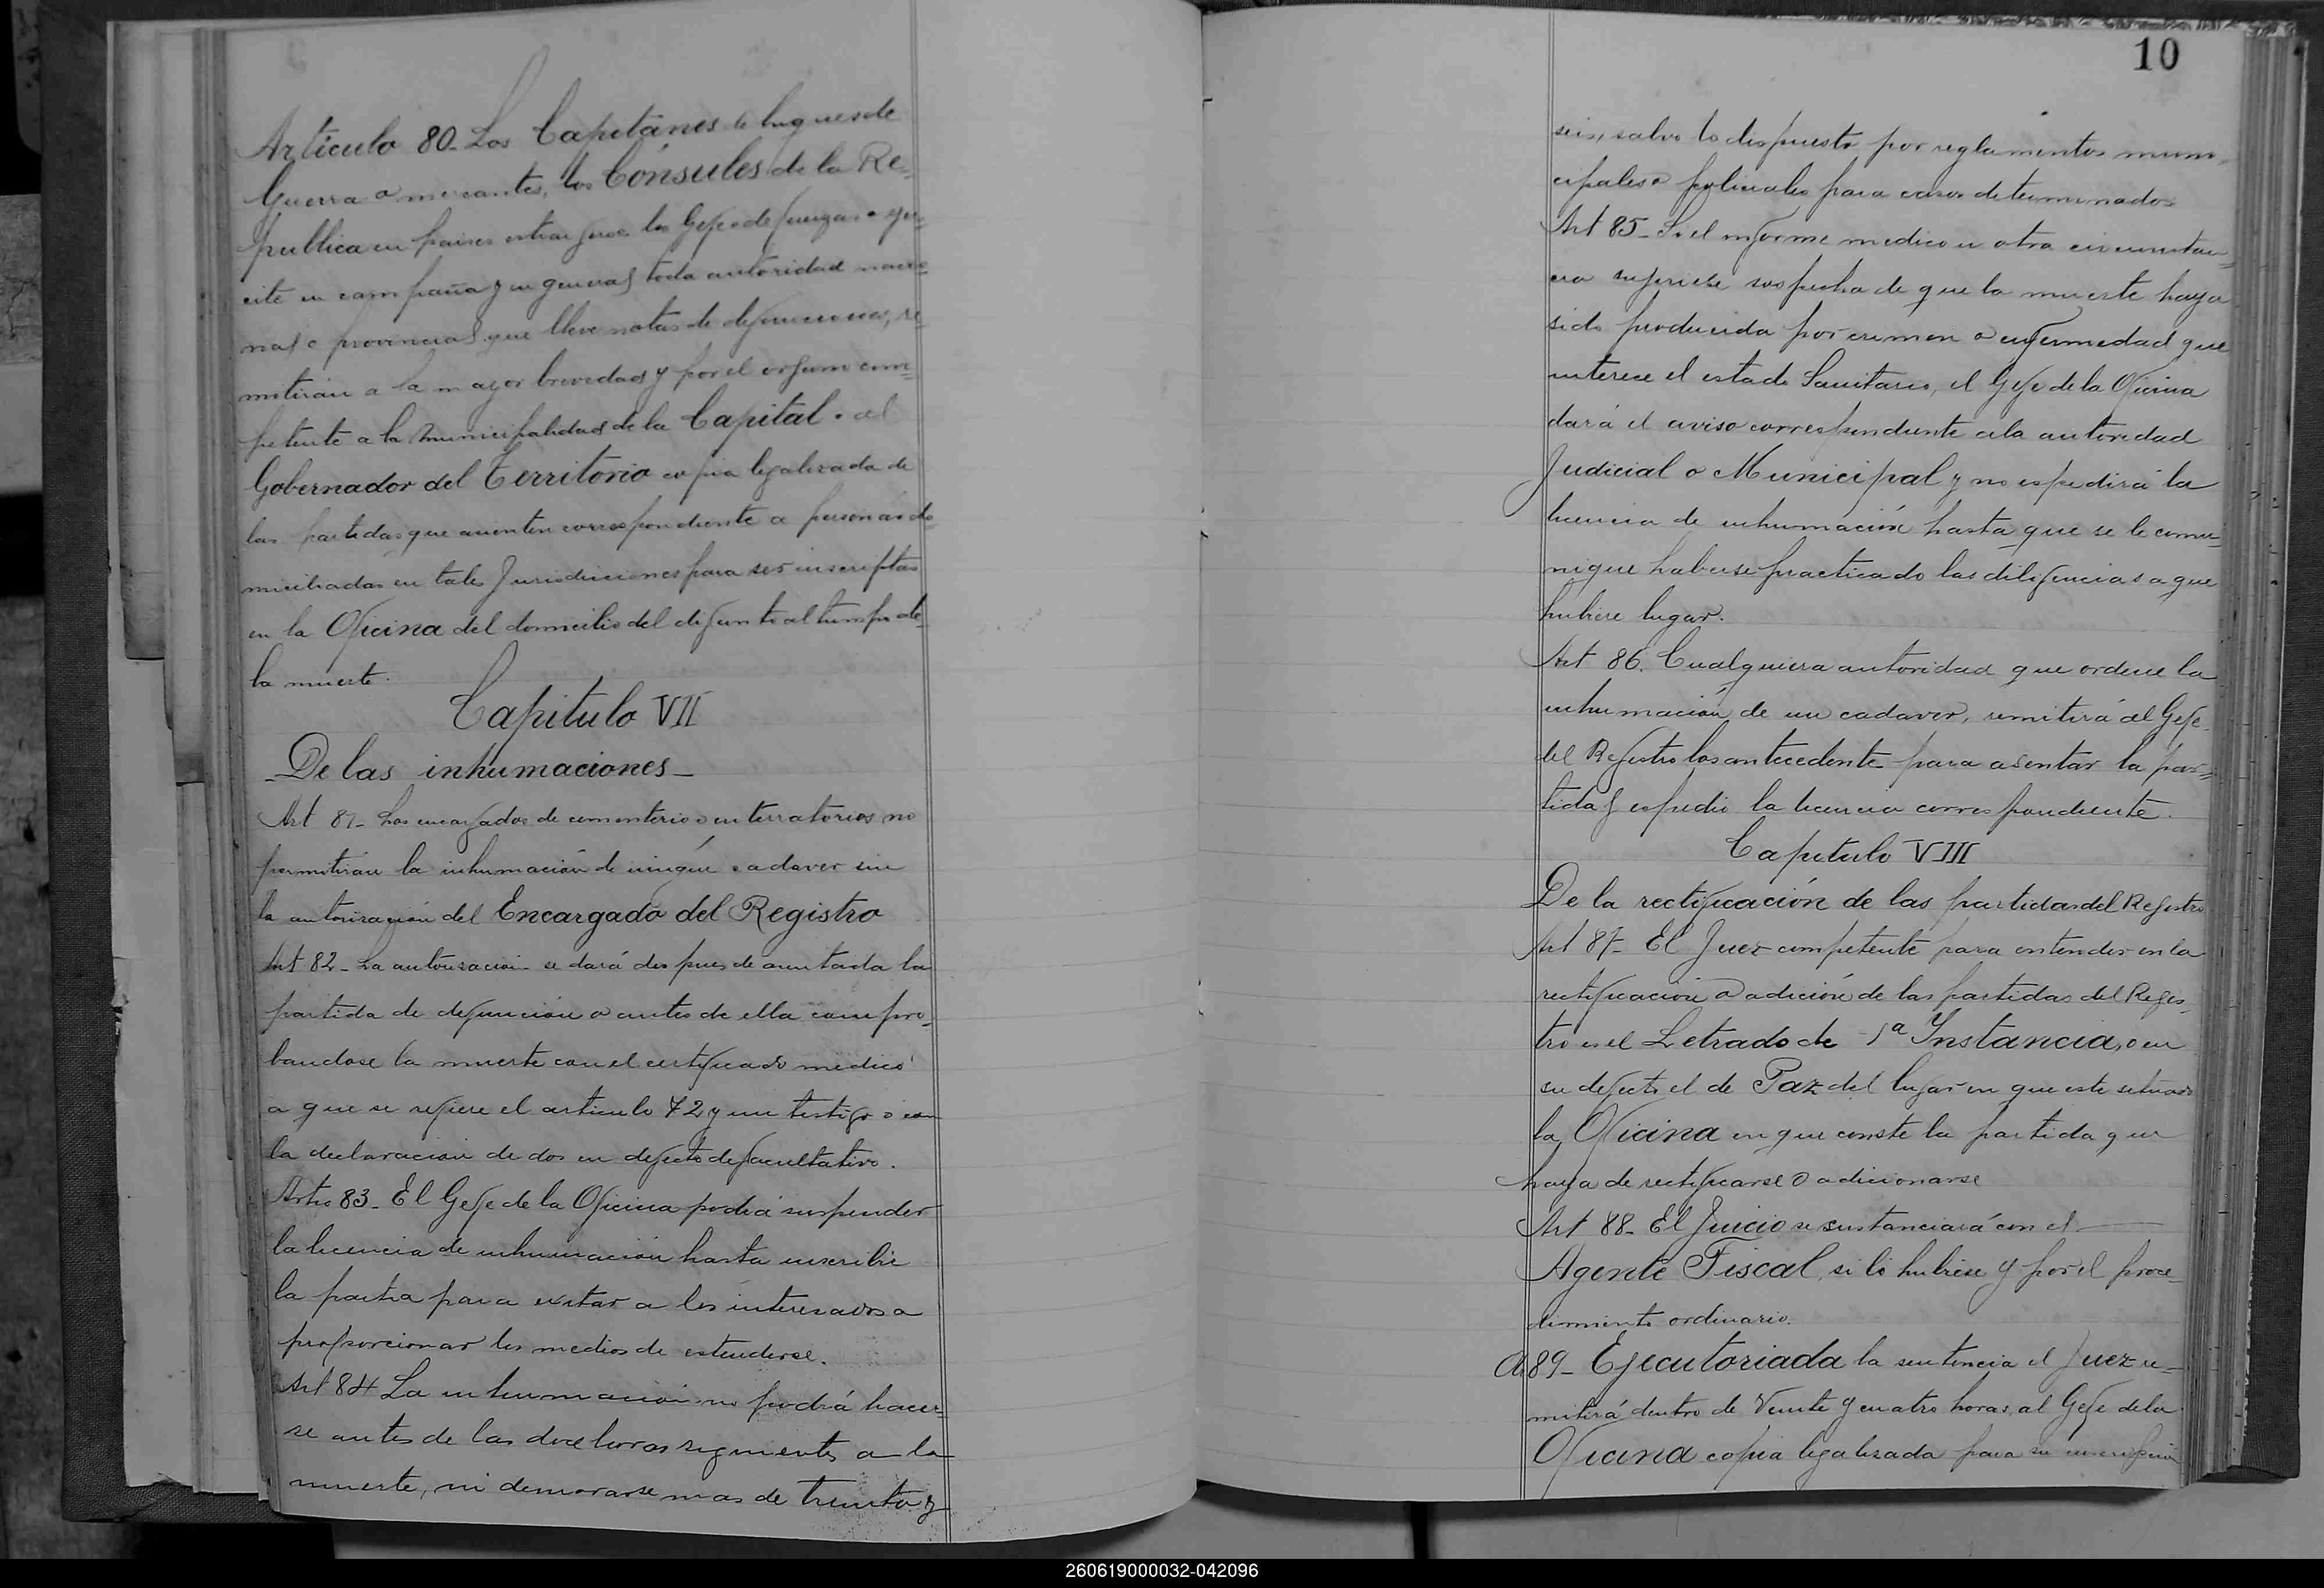 Articulo 80_ Los Capitanes de buques de
Guerra o mercantes, los Cónsules de la Re=
publica en paises estrangeros los Gefes de fuerzas o ger=
cito en campaña y en general toda autoridad nacio=
nal o provincial que lleve notas de defunciones, re=
mitirán a la mayor brevedad y por el organo com=
petente a la Municipalidad de la Capital o al
Gobernador del Territorio copia legalizada de
las partidas que asienten correspondiente a personas do=
miciliadas en tales Jurisdicciones para ser inscriptas
en la Oficina del domicilio del difunto al tiempo de
la muerte.
Capitulo VII
_De las inhumaciones_
Art 81_ Los encargados de cementerios o enterratorios no
permitiran la inhumación de ningún cadaver sin
la autorización del Encargado del Registro
Art 82_ La autorizacion se dará despues de asentada la
partida de defunción o antes de ella compro=
bandose la muerte con el certificado medico
a que se refiere el articulo 72 y un testigo o con
la declaracion de dos en defecto de facultativo.
Arto 83_ El Gefe de la Oficina podrá suspender
la licencia de inhumación hasta inscribir
la partia para exitar a los interesados a
proporcionar los medios de estenderse.
Art 84 La inhumación no podrá hacer=
se antes de las doce horas siguientes a la
muerte, ni demorarse mas de treinta y
10
seis, salvo lo dispuesto por reglamentos muni=
cipales o policiales para casos determinados
Art 85_ Si el informe medico u otra circunstan=
cia sugiriese sospecha de que la muerte haya
sido producida por crimen o enfermedad que
interese el estado Sanitario, el Gefe de la Oficina
dará el aviso correspondiente a la autoridad
Judicial o Municipal y no espedirá la
licencia de inhumación hasta que se le comu=
nique haberse practicado las diligencias a que
hubiere lugar.
Art 86. Cualquiera autoridad que ordene la
inhumación de un cadaver, remitirá al Gefe
del Registro los antecedente para asentar la par=
tida y espedir la licencia correspondiente.
Capitulo VIII
De la rectificación de las partidas del Registro
Art 87_ El Juez competente para entender en la
rectificación o adición de las partidas del Regis=
tro es el Letrado de 1ª Instancia, o en
su defecto el de Paz del lugar en que este situado
la Oficina en que conste la partida que
haya de rectificarse o adicionarse
Art 88_ El Juicio se sustanciará con el
Agente Fiscal, si lo hubiese y por el proce=
dimiento ordinario.
A 89_ Ejecutoriada la sentencia el Juez re=
mitirá dentro de Veinte y cuatro horas, al Gefe de la
Oficina copia legalizada para su inscripción
260619000032-042096